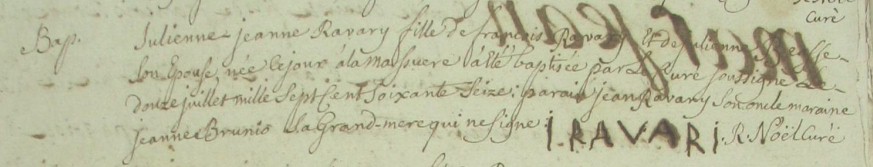 Curé
Bap. Julienne Jeanne Ravary fille de francois Ravary Et de Julienne
Son Epouse, née Ce jour á la Massuere á Eté baptisée par Le Curé soussigné Le
douze juillet mille Sept Cent Soixante Seize; parain jean Ravary Son oncle maraine
jeanne Brunio Sa Grand-mere qui ne Signe I RAVARI. R. Noël Curé